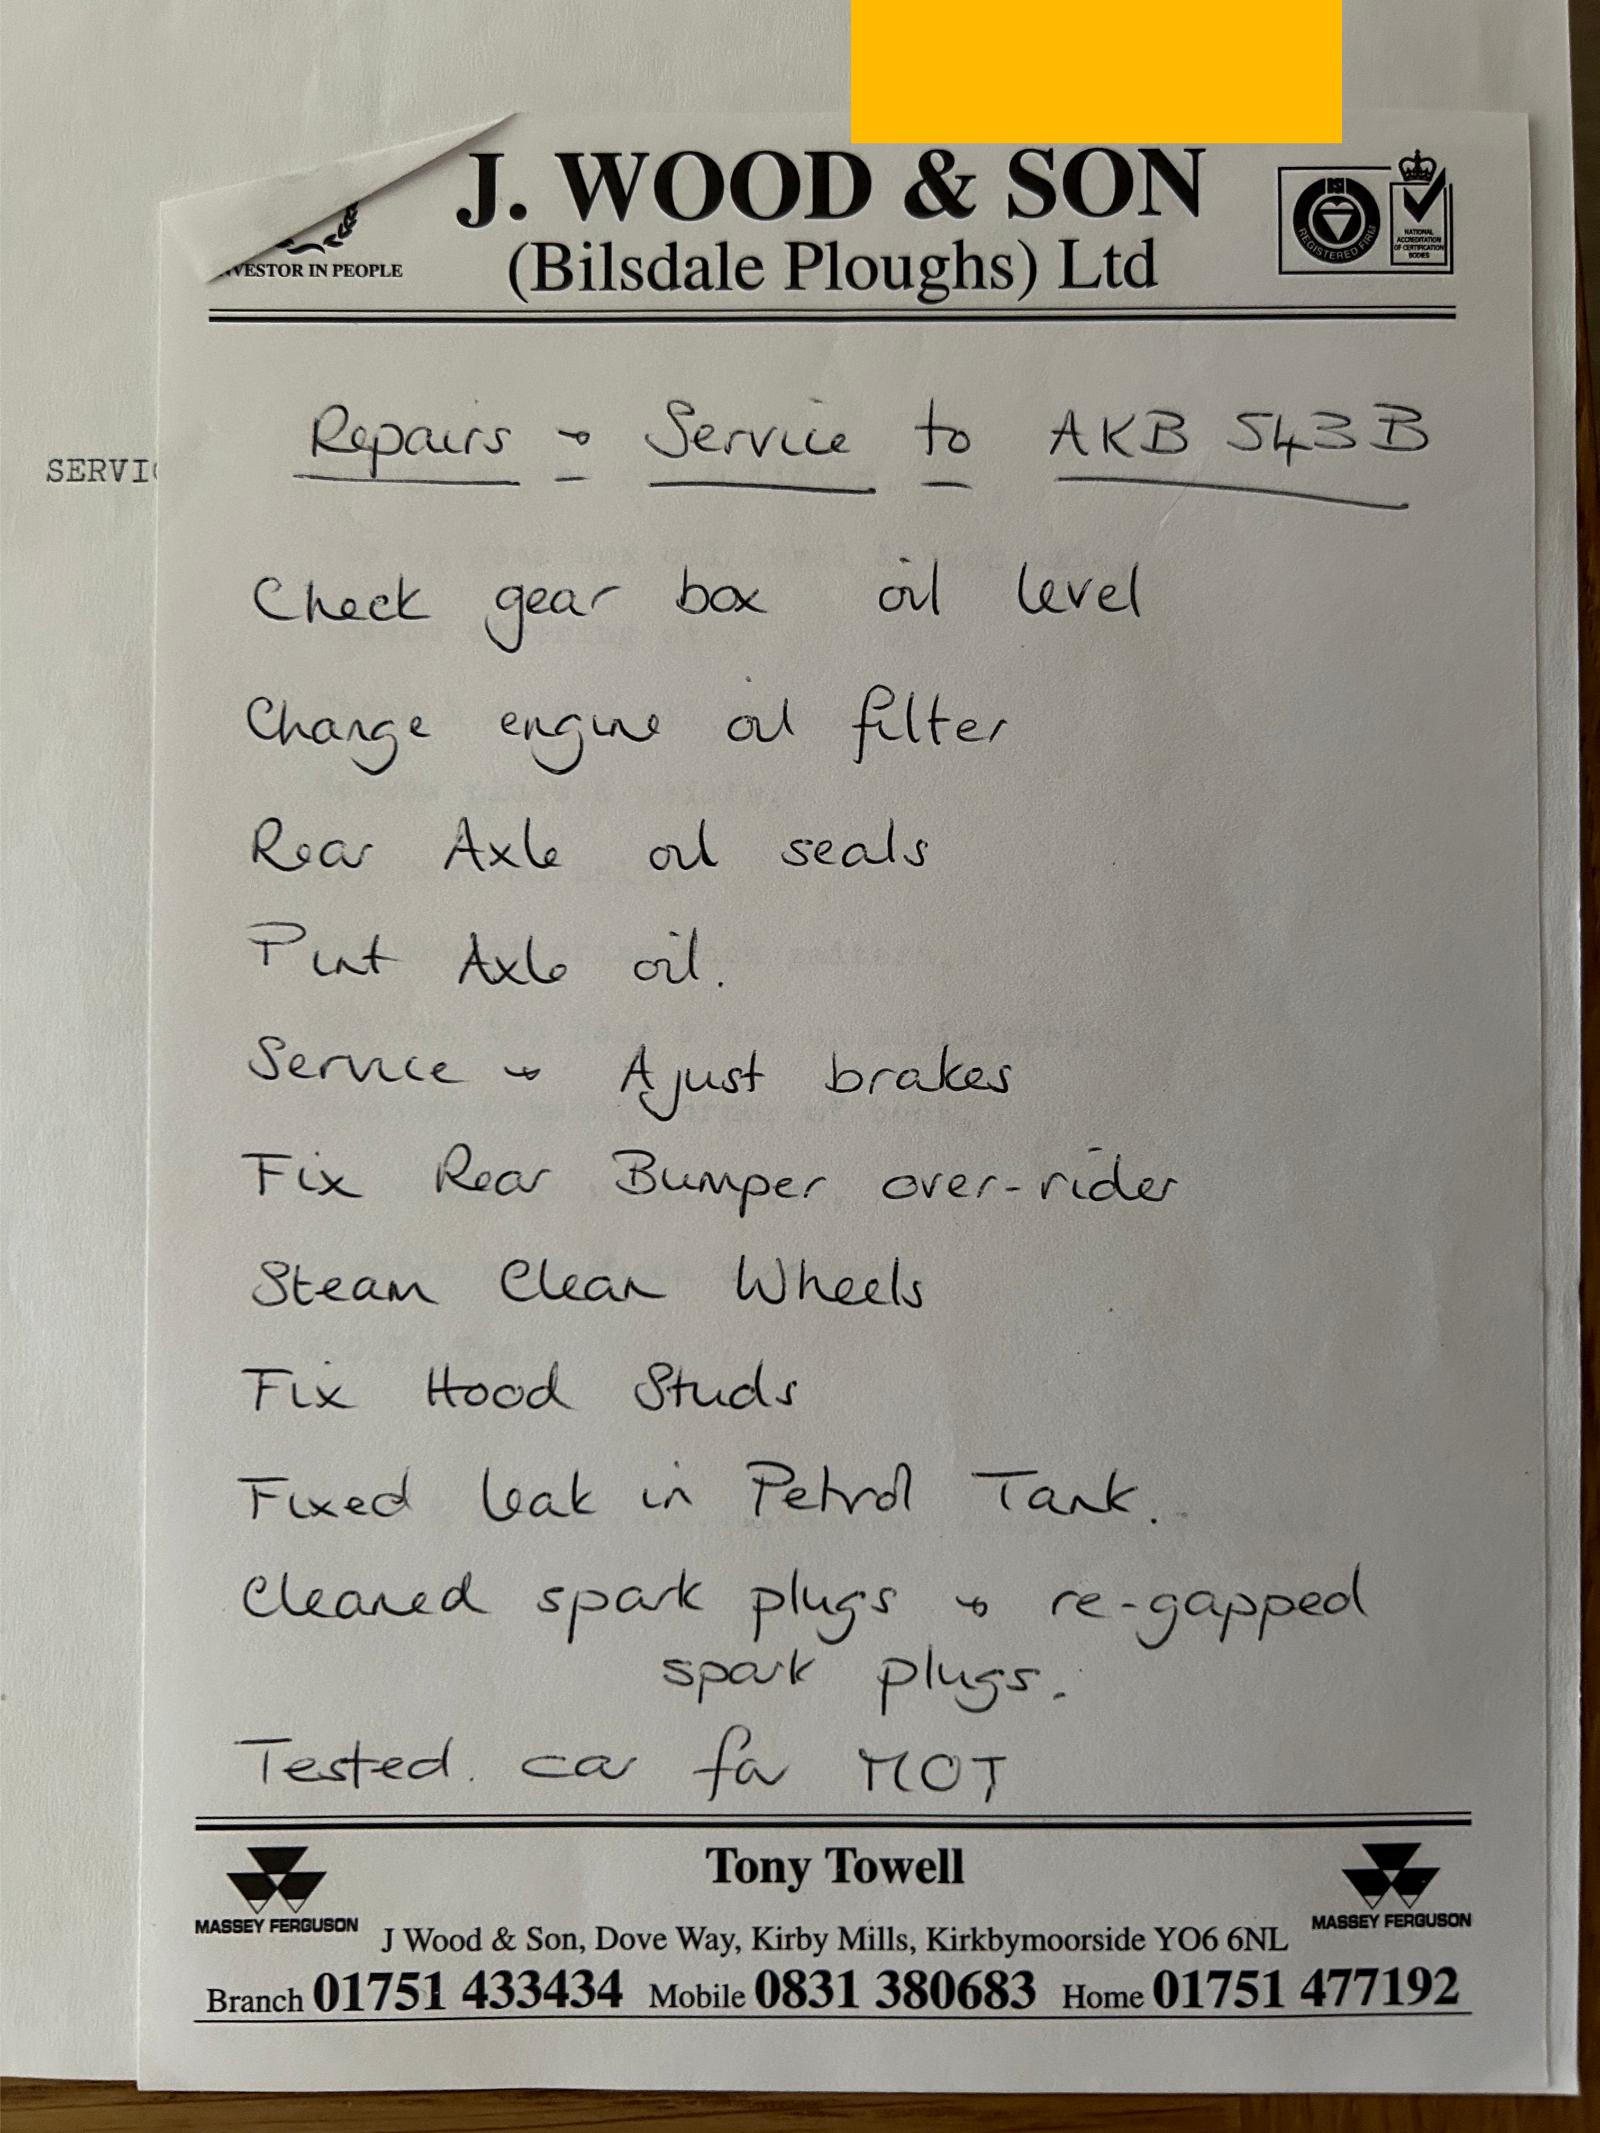 J. WOOD & SON
(Bilsdale Ploughs) Ltd
VESTOR IN PEOPLE
REGISTERED FIRM
NATIONAL
ACCREDITATION
OF CERTIFICATION
BODIES
SERVIC
Repairs & Service to AKB 543B
Check gear box oil level
Change engine oil filter
Rear Axle oil seals
Pint Axle oil.
Service & Ajust brakes
Fix Rear Bumper over-rider
Steam Clean Wheels
Fix Hood Studs
Fixed leak in Petrol Tank.
Cleaned spark plugs & re-gapped
spark plugs.
Tested car for MOT
Tony Towell
MASSEY FERGUSON
MASSEY FERGUSON
J Wood & Son, Dove Way, Kirby Mills, Kirkbymoorside YO6 6NL
Branch 01751 433434 Mobile 0831 380683 Home 01751 477192